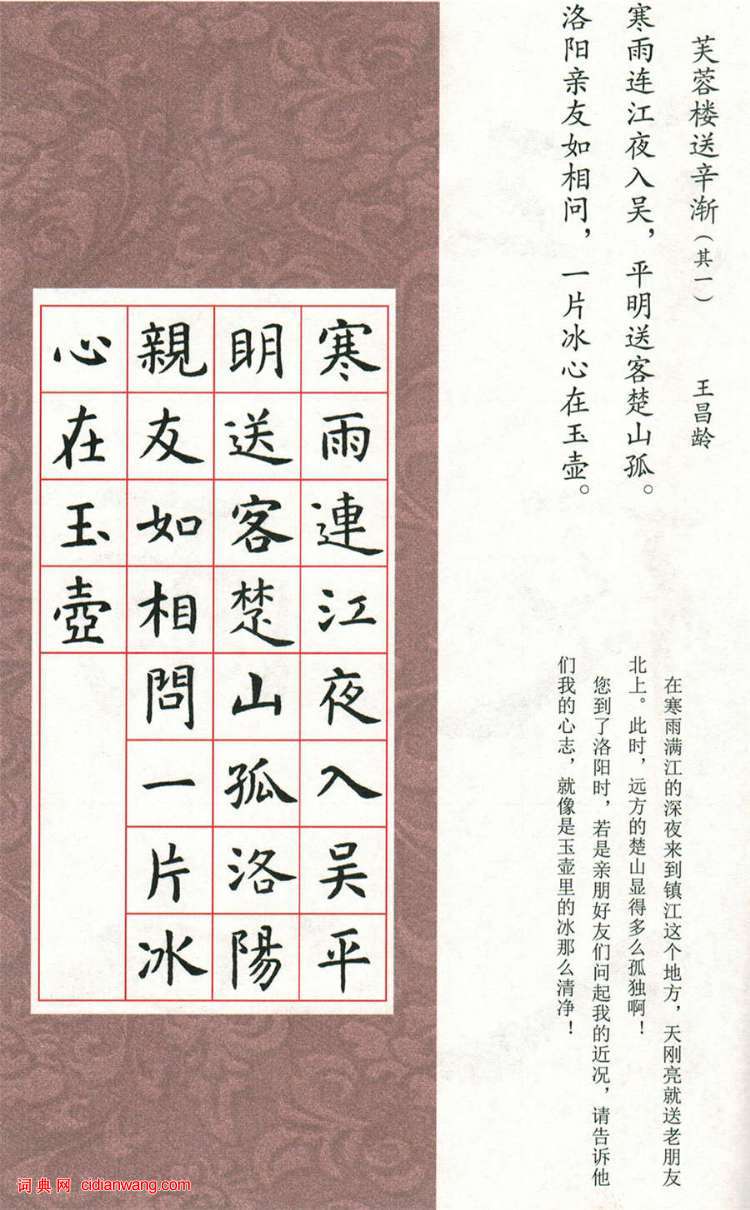 芙蓉楼送辛渐（其一） 王昌龄
寒雨连江夜入吴，平明送客楚山孤。
洛阳亲友如相问，一片冰心在玉壶。
在寒雨满江的深夜来到镇江这个地方，天刚亮就送老朋友
北上。此时，远方的楚山显得多么孤独啊！
您到了洛阳时，若是亲朋好友们问起我的近况，请告诉他
们我的心志，就像是玉壶里的冰那么清净！
寒雨連江夜入吴平
明送客楚山孤洛陽
親友如相問一片冰
心在玉壺
词典网 cidianwang.com